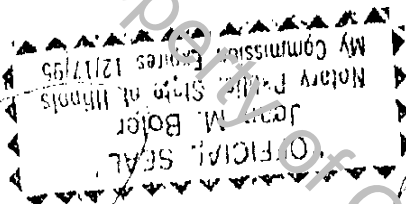 "OFFICIAL SEAL"
Jean M. Bojor
Notary Public, State of Illinois
My Commission Expires 12/17/95